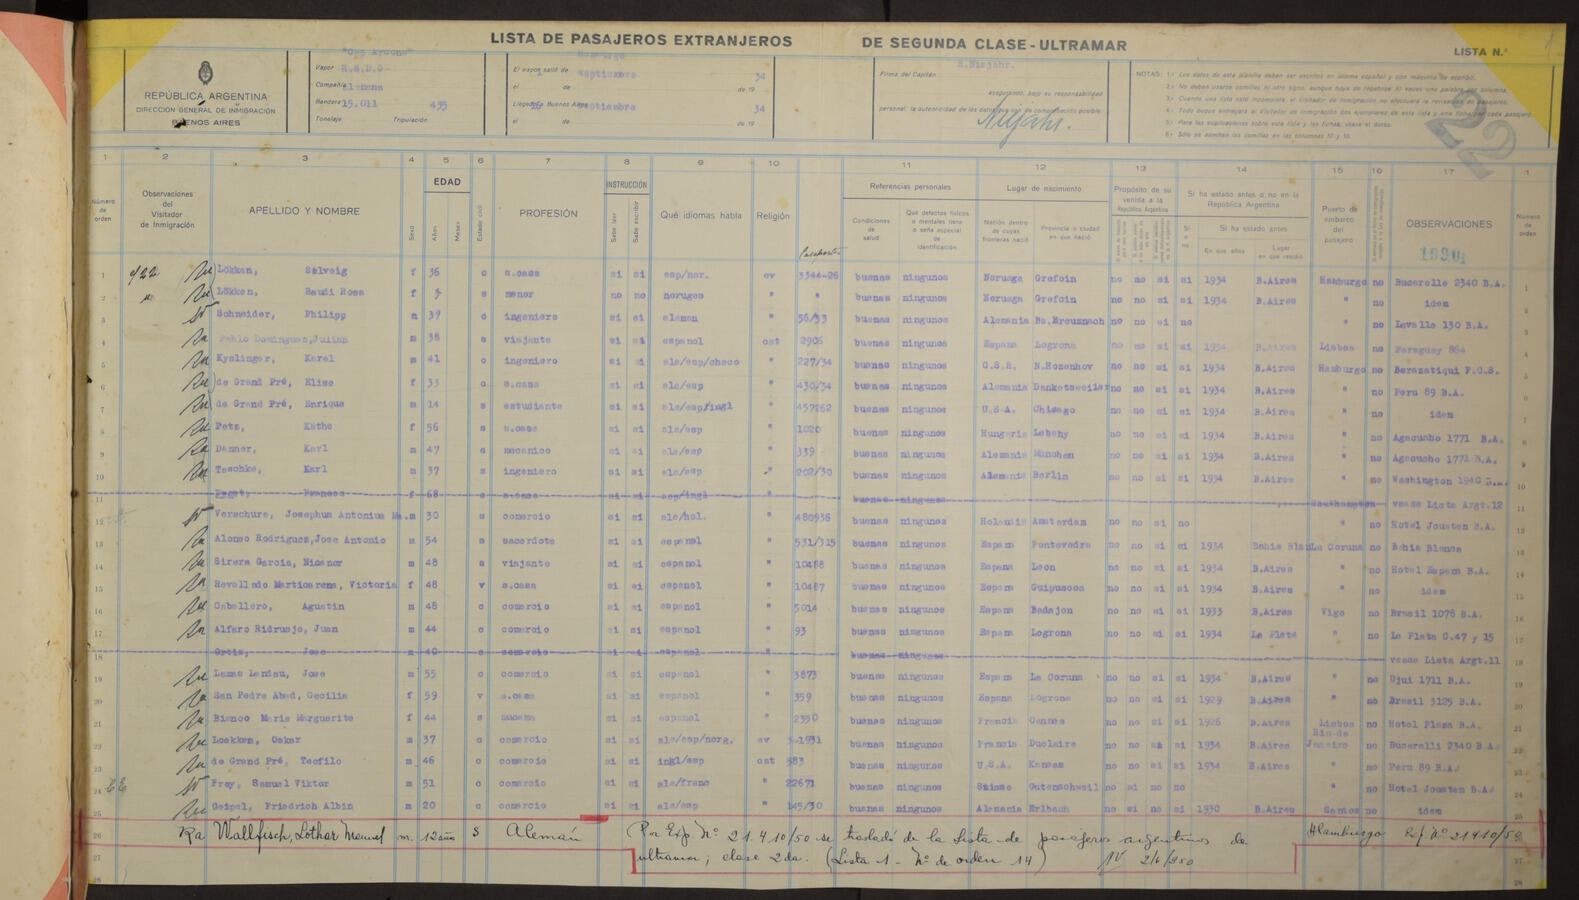 LISTA DE PASAJEROS EXTRANJEROS DE SEGUNDA CLASE - ULTRAMAR
LISTA N.°
REPÚBLICA ARGENTINA
DIRECCIÓN GENERAL DE INMIGRACIÓN
BUENOS AIRES
Vapor "Cap Arcona"
Compañía H.S.D.G.
Bandera Alemana
Tonelaje 15.011 Tripulación 435
El vapor salió de Hamburgo
el de septiembre de 19 34
Llegando a Buenos Aires
el de septiembre de 19 34
Firma del Capitán
asegurando, bajo su responsabilidad
personal, la autenticidad de los datos que son de comprobación posible.
Niejahr.
NOTAS: 1.- Los datos de esta planilla deben ser escritos en idioma español y con máquina de escribir.
22
1 2 3 4 5 6 7 8 9 10 11 12 13 14 15 16 17 1
Número de orden
Observaciones del Visitador de Inmigración
APELLIDO Y NOMBRE
Sexo
EDAD
Años
Meses
Estado civil
PROFESIÓN
INSTRUCCIÓN
Sabe leer
Sabe escribir
Qué idiomas habla
Religión
Pasaporte
Referencias personales
Condiciones de salud
Qué defectos físicos o mentales tiene o seña especial de identificación
Lugar de nacimiento
Nación dentro de cuyas fronteras nació
Provincia o ciudad en que nació
Propósito de su venida a la República Argentina
Si ha estado antes o no en la República Argentina
Si o no
Si ha estado antes
En que años
Lugar en que residió
Puerto de embarco del pasajero
OBSERVACIONES
Número de orden
1 Lökken, Solveig f 36 c s.casa si si esp/nor. ev 3344-26 buenas ningunos Noruega Grefoin no no si si 1934 B.Aires Hamburgo no Bucarelle 2340 B.A. 1
2 Lökken, Raudi Rosa f s menor no no noruego " " buenas ningunos Noruega Grefoin no no si si 1934 B.Aires " no idem 2
3 Schneider, Philipp m 37 c ingeniero si si aleman " 56/33 buenas ningunos Alemania Bs.Kreuznach no no si no " no Lavalle 130 B.A. 3
4 Pablo Dominguez,Julian m 38 s viajante si si espanol cat 2906 buenas ningunos Espana Logrono no no si si 1934 B.Aires Lisboa no Paraguay 864 4
5 Kyslinger, Karel m 41 c ingeniero si si ale/esp/checo " 227/34 buenas ningunos C.S.R. N.Hozenhov no no si si 1934 B.Aires Hamburgo no Berazatiqui F.C.S. 5
6 de Grand Pré, Elise f 33 c s.casa si si ale/esp " 430/34 buenas ningunos Alemania Danketsweiler no no si si 1934 B.Aires " no Peru 89 B.A. 6
7 de Grand Pré, Enrique m 14 s estudiante si si ale/esp/ingl " 457262 buenas ningunos U.S.A. Chicago no no si si 1934 B.Aires " no idem 7
8 Petz, Käthe f 56 s s.casa si si ale/esp " 1020 buenas ningunos Hungaria Lebeny no no si si 1934 B.Aires " no Agacucho 1771 B.A. 8
9 Danner, Karl m 47 s mecanico si si ale/esp " 339 buenas ningunos Alemania München no no si si 1934 B.Aires " no Agacucho 1771 B.A. 9
10 Teschke, Karl m 37 s ingeniero si si ale/esp " 202/30 buenas ningunos Alemania Berlin no no si si 1934 B.Aires " no Washington 1940 B.A. 10
11 f 68 s.casa si si esp/ingl " buenas ningunos Southampton vease Lista Argt.12 11
12 Verschure, Josephus Antonius Ma. m 30 s comercio si si ale/hol. " 480936 buenas ningunos Holandia Amsterdam no no si no " no Hotel Jousten B.A. 12
13 Alonso Rodriguez,Jose Antonio m 54 s sacerdote si si espanol " 531/315 buenas ningunos Espana Pontevedra no no si si 1934 Bahia Blan La Coruna no Bahia Blanca 13
14 Sirera Garcia, Nicanor m 48 s viajante si si espanol " 10488 buenas ningunos Espana Leon no no si si 1934 B.Aires " no Hotel Espana B.A. 14
15 Revellado Marticorena, Victoria f 48 v s.casa si si espanol " 10487 buenas ningunos Espana Guipuzcoa no no si si 1934 B.Aires " no idem 15
16 Caballero, Agustin m 48 c comercio si si espanol " 5014 buenas ningunos Espana Badajon no no si si 1933 B.Aires Vigo no Brasil 1078 B.A. 16
17 Alfaro Ridruejo, Juan m 44 c comercio si si espanol " 93 buenas ningunos Espana Logrono no no si si 1934 La Plata " no La Plata C.47 y 15 17
18 Ortiz, Jose m 40 c comercio si si espanol " buenas ningunos vease Lista Argt.11 18
19 Lamas Landeu, Jose m 55 c comercio si si espanol " 3873 buenas ningunos Espana La Coruna no no si si 1934 B.Aires " no Ujui 1711 B.A. 19
20 San Pedro Abad, Cecilia f 59 v s.casa si si espanol " 359 buenas ningunos Espana Logrono no no si si 1929 B.Aires " no Brasil 3125 B.A. 20
21 Bianco Marie Marguerite f 44 s si si espanol " 2350 buenas ningunos Francia Cannes no no si si 1926 B.Aires Lisboa no Hotel Plaza B.A. 21
22 Loekken, Oskar m 37 c comercio si si ale/esp/norg. ev 3-1931 buenas ningunos Francia Duclaire no no si si 1934 B.Aires Rio de Janeiro no Bucarelli 2340 B.A. 22
23 de Grand Pré, Teofilo m 46 c comercio si si ingl/esp cat 583 buenas ningunos U.S.A. Kansas no no si si 1934 B.Aires " no Peru 89 B.A. 23
24 Frey, Samuel Viktor m 51 c comercio si si ale/franc " 22671 buenas ningunos Suisse Gutenschweil no si no no " no Hotel Jousten B.A. 24
25 Geipel, Friedrich Albin m 20 s comercio si si ale/esp " 145/30 buenas ningunos Alemania Erlbach no si no si 1930 B.Aires Santos no idem 25
26 Ra Wallfisch, Lothar Manuel m. 12 años S Alemán Por Exp. N° 21.410/50 se traslado de la Lista de pasajeros argentinos de Hamburgo Exp N° 21410/50
27 ultramar; clase 2da. (Lista 1 - N° de orden 14) 2/6/950 27
28 28